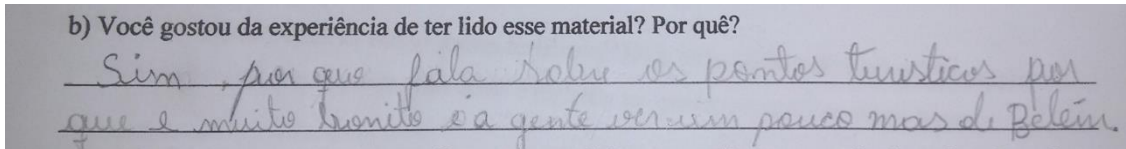 b) Você gostou da experiência de ter lido esse material? Por quê?
Sim, por que fala sobre os pontos turisticos por
que e muito bonito e a gente ver um pouco mas de Belém.